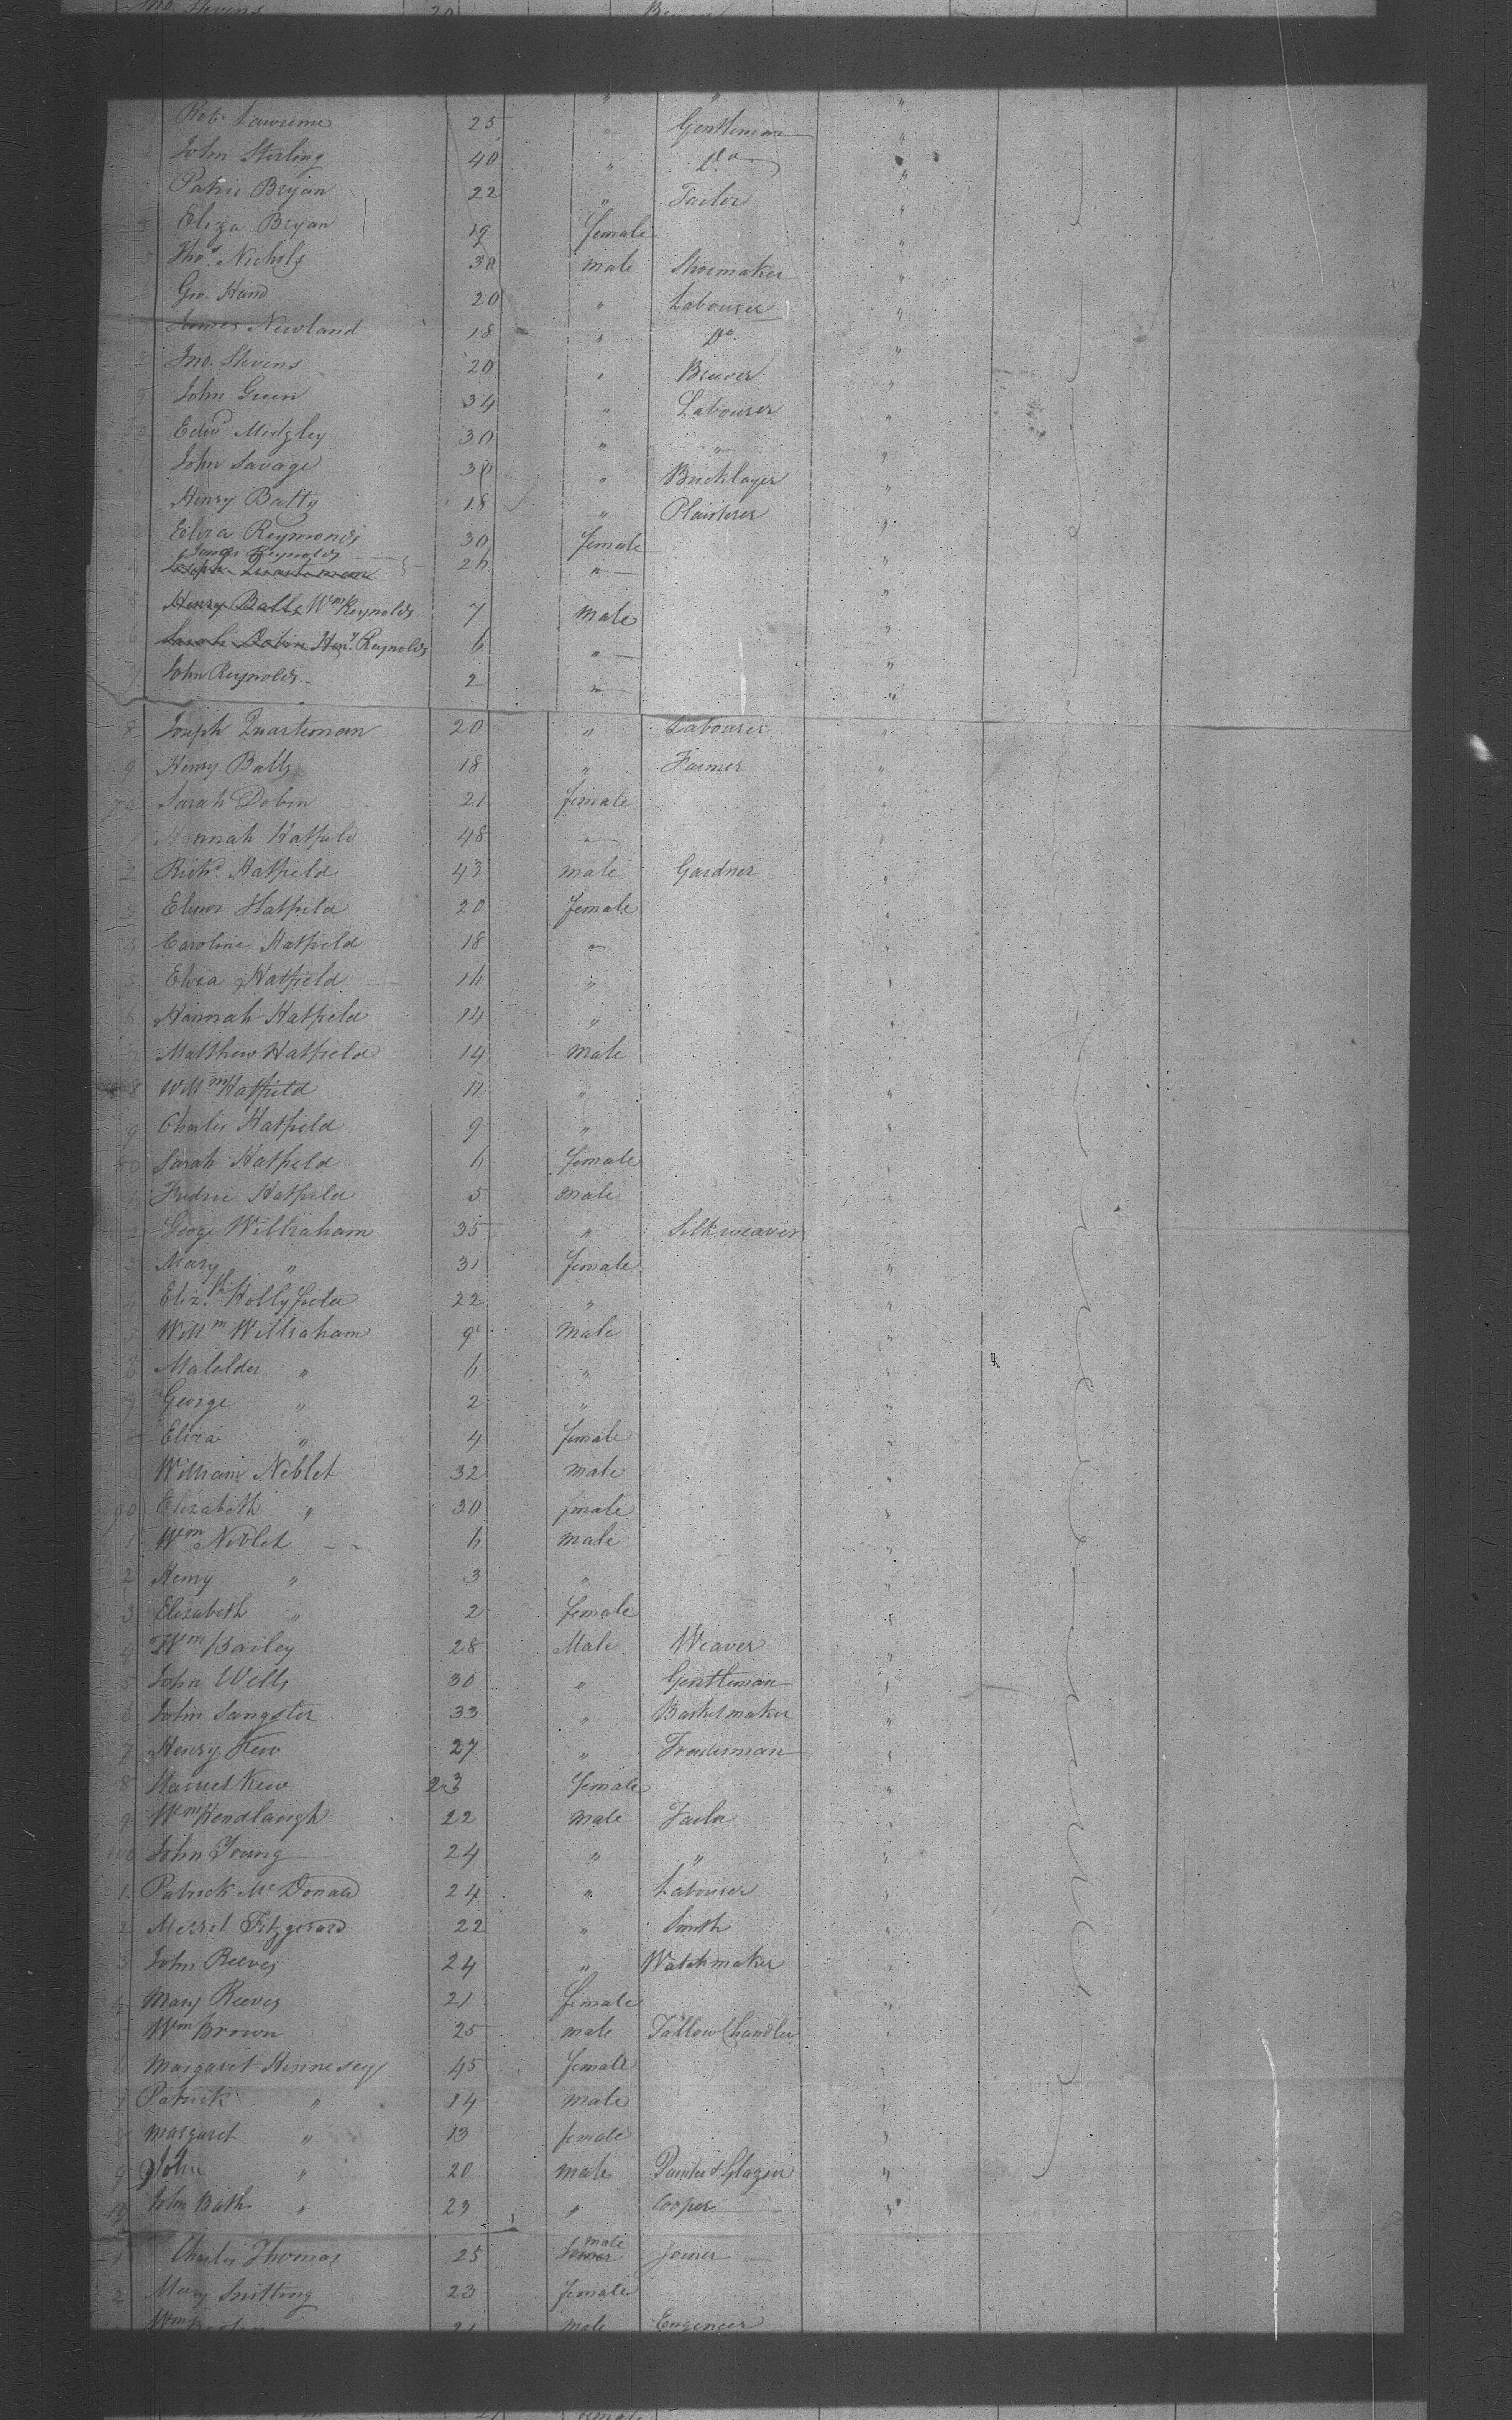 Jno. Stevens 20 Brewer
" " "
1 Robt. Lawrence 25 " Gentleman "
2 John Sterling 40 " Do "
3 Patric Bryan 22 " Tailor "
4 Eliza Bryan 19 female "
5 Thos. Nichols 30 male Shoemaker "
6 Geo. Hand 20 " Labourer "
7 James Newland 18 " Do. "
8 Jno. Stevens 20 " Brewer "
9 John Green 34 " Labourer "
Edwd Midgley 30 " " "
1 John Savage 30 " Bricklayer "
Henry Batty 18 " Plaisterer "
3 Eliza Reymonds 30 female "
4 Joseph Quarteman Reynolds 26 " "
5 Henry Batts Wm Reynolds 7 male "
6 Sarah Dobin Heny. Reynolds 6 " "
7 John Reynolds 2 " "
8 Joseph Quarteman 20 " Labourer "
9 Henry Batts 18 " Farmer "
70 Sarah Dobin 21 female "
1 Hannah Hatfield 48 " "
2 Richd. Hatfield 43 male Gardner "
3 Elenor Hatfield 20 female "
4 Caroline Hatfield 18 " "
5 Eliza Hatfield 16 " "
6 Hannah Hatfield 14 " "
7 Matthew Hatfield 14 male "
8 Willm Hatfield 11 " "
9 Charles Hatfield 9 " "
80 Sarah Hatfield 6 female "
1 Fredric Hatfield 5 male "
2 George Wilbraham 35 " Silk weaver "
3 Mary " 31 female "
4 Elizth. Hollyfield 22 " "
5 Willm Wilbraham 9 male "
6 Matilder " 6 " "
7 George " 2 " "
8 Eliza " 4 female "
9 William Neblet 32 male "
90 Elizabeth " 30 female "
1 Wm Neblet 6 male "
2 Henry " 3 " "
3 Elizabeth " 2 female "
4 Wm Bailey 28 Male Weaver "
5 John Wells 30 " Gentleman "
6 John Sangster 33 " Basketmaker "
7 Henry Kew 27 " Tradesman "
8 Harriet Kew 23 female "
9 Wm Hendlaugh 22 male Tailor "
100 John Young 24 " " "
1 Patrick McDonald 24 " Labourer "
2 Fitzgerard 22 " Smith "
3 John Reeves 24 " Watchmaker "
4 Mary Reeves 21 female "
5 Wm Brown 25 male Tallow Chandler "
6 Margaret Hennesey 45 female "
7 Patrick " 14 male "
8 Margaret " 13 female "
9 John " 20 male Painter & Glazier "
110 John Bath " 23 " Cooper "
1 Charles Thomas 25 male Joiner
2 Mary 23 female
Wm male Engineer
female